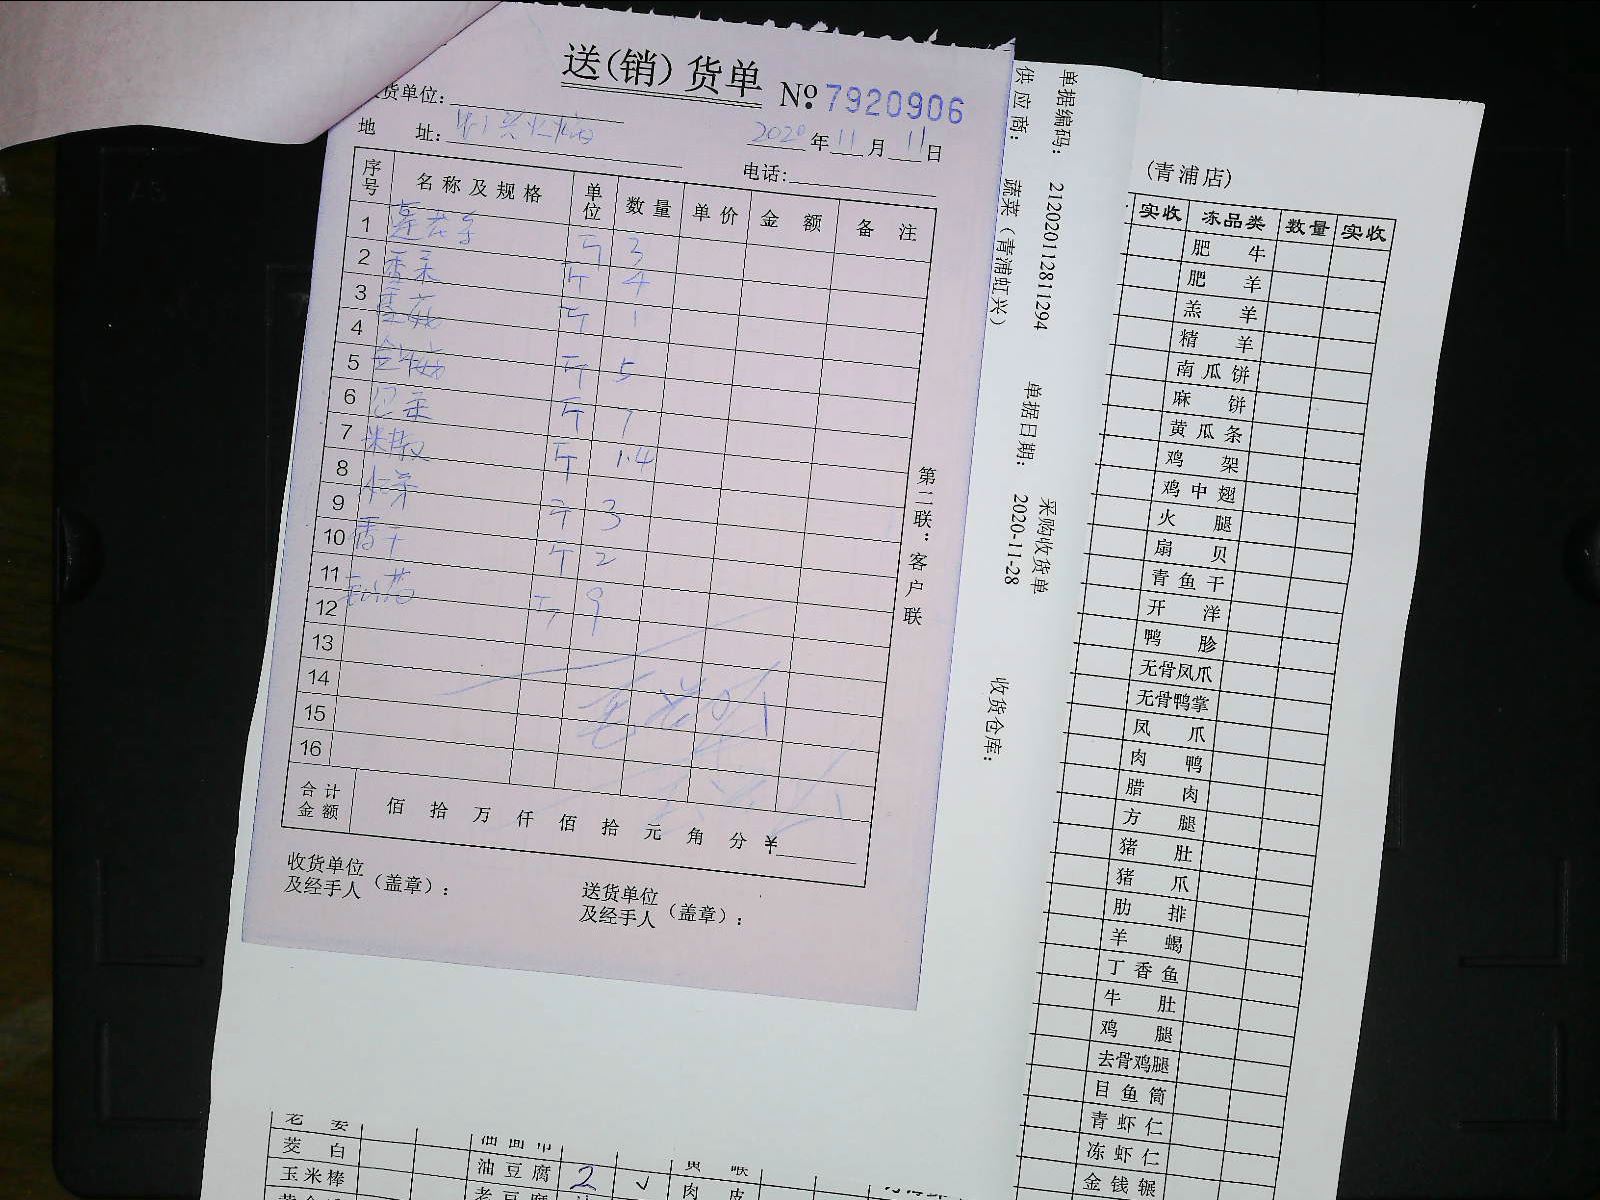 送(销)货单 № 7920906
货单位:
地 址: 2020年11月11日
电话:
序号 名称及规格 单位 数量 单价 金额 备注
1 斤 3
2 香菜 斤 4
3 香菇 斤 1
4
5 金针菇 斤 5
6 斤
7 米椒 斤 1.4
8
9 斤 3
10 香干 斤 2
11
12 斤 9
13
14
15
16
合计金额 佰 拾 万 仟 佰 拾 元 角 分 ¥
收货单位及经手人(盖章):
送货单位及经手人(盖章):
第二联:客户联
采购收货单
单据编码: 212020112811294
单据日期: 2020-11-28
收货仓库:
供应商: 蔬菜(青浦虹兴)
(青浦店)
实收 冻品类 数量 实收
肥牛
肥羊
羔羊
精羊
南瓜饼
麻饼
黄瓜条
鸡架
鸡中翅
火腿
扇贝
青鱼干
开洋
鸭胗
无骨凤爪
无骨鸭掌
凤爪
肉鸭
腊肉
方腿
猪肚
猪爪
肋排
羊蝎
丁香鱼
牛肚
鸡腿
去骨鸡腿
目鱼筒
青虾仁
冻虾仁
金钱辗
茭白
油豆腐 2 √
玉米棒
老豆腐
肉皮